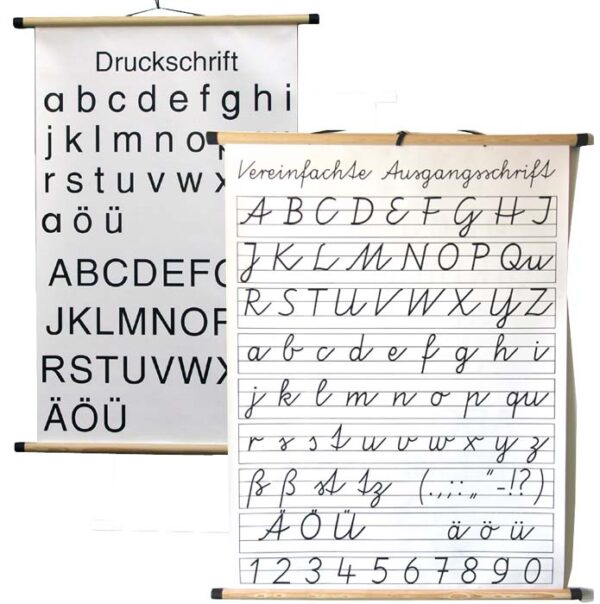 Druckschrift
a b c d e f g h i
j k l m n o p
r s t u v w x
a ö ü
ABCDEFG
JKLMNOP
RSTUVWX
ÄÖÜ
Vereinfachte Ausgangsschrift
A B C D E F G H I
J K L M N O P Qu
R S T U V W X Y Z
a b c d e f g h i
j k l m n o p qu
r s s t u v w x y z
ß ß st tz (.,;:„“-!?)
Ä Ö Ü ä ö ü
1 2 3 4 5 6 7 8 9 0